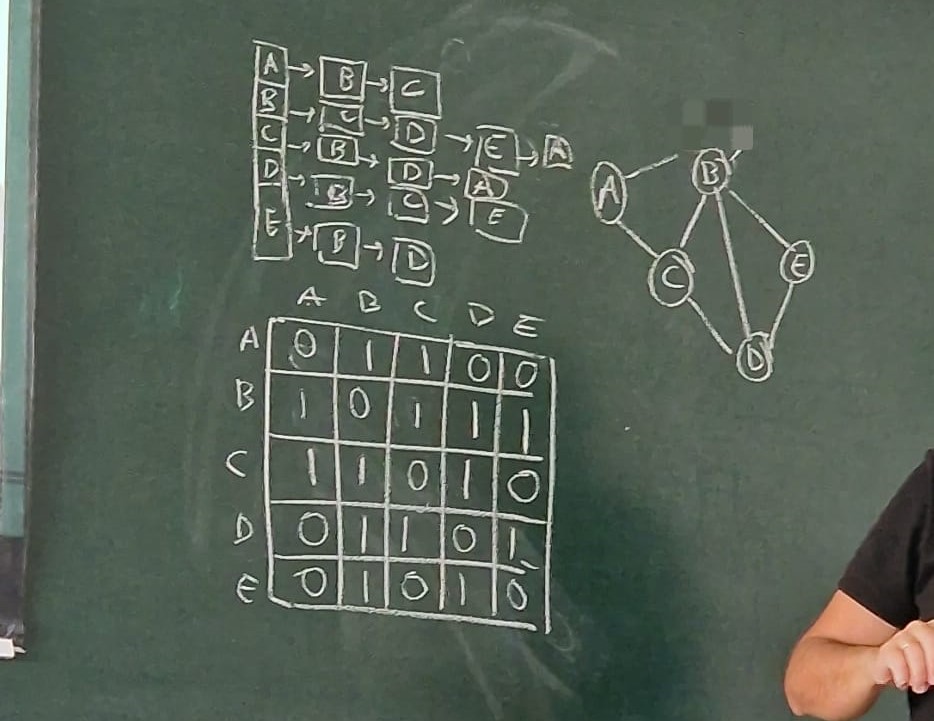 A → B → C
B → C → D → E → A
C → B → D → A
D → B → C → E
E → B → D
A B C D E
A 0 1 1 0 0
B 1 0 1 1 1
C 1 1 0 1 0
D 0 1 1 0 1
E 0 1 0 1 0
A
B
C
E
D